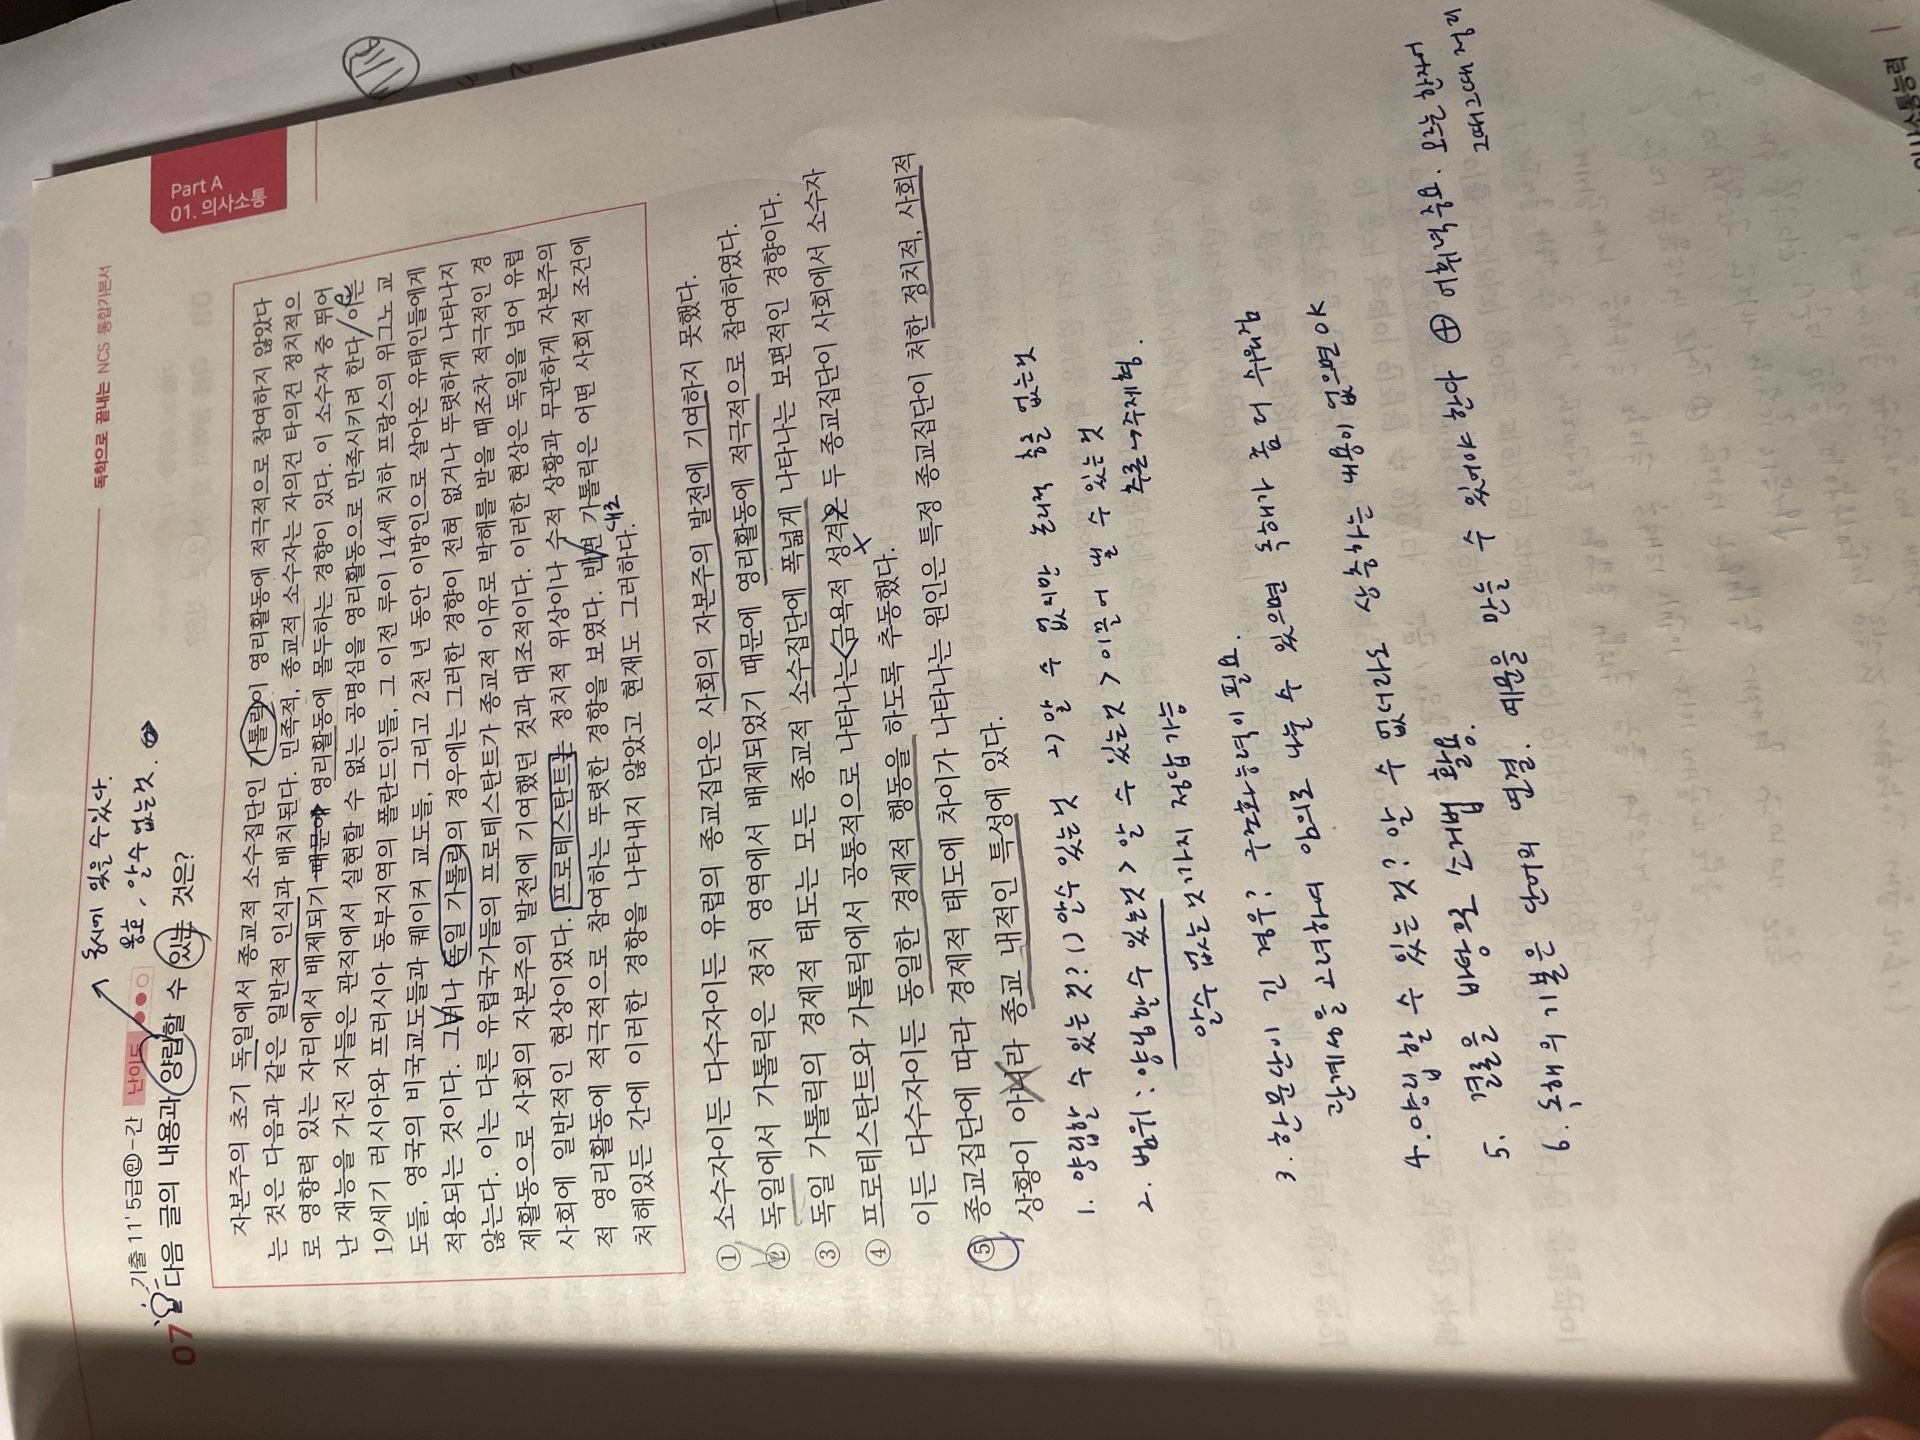 독학으로 끝내는 NCS 통합기본서
Part A
01. 의사소통
동시에 있을 수 있다.
옹호, 알 수 없는것.
07
기출 11' 5급㉑-간 난이도
다음 글의 내용과 양립할 수 있는 것은?
자본주의 초기 독일에서 종교적 소수집단인 가톨릭이 영리활동에 적극적으로 참여하지 않았다
는 것은 다음과 같은 일반적 인식과 배치된다. 민족적, 종교적 소수자는 자의건 타의건 정치적으
로 영향력 있는 자리에서 배제되기 때문에 영리활동에 몰두하는 경향이 있다. 이 소수자 중 뛰어
난 재능을 가진 자들은 관직에서 실현할 수 없는 공명심을 영리활동으로 만족시키려 한다. 이는
19세기 러시아와 프러시아 동부지역의 폴란드인들, 그 이전 루이 14세 치하 프랑스의 위그노 교
도들, 영국의 비국교도들과 퀘이커 교도들, 그리고 2천 년 동안 이방인으로 살아온 유태인들에게
적용되는 것이다. 그러나 독일 가톨릭의 경우에는 그러한 경향이 전혀 없거나 뚜렷하게 나타나지
않는다. 이는 다른 유럽국가들의 프로테스탄트가 종교적 이유로 박해를 받을 때조차 적극적인 경
제활동으로 사회의 자본주의 발전에 기여했던 것과 대조적이다. 이러한 현상은 독일을 넘어 유럽
사회에 일반적인 현상이었다. 프로테스탄트는 정치적 위상이나 수적 상황과 무관하게 자본주의
적 영리활동에 적극적으로 참여하는 뚜렷한 경향을 보였다. 반면 가톨릭은 어떤 사회적 조건에
처해있든 간에 이러한 경향을 나타내지 않았고 현재도 그러하다.
① 소수자이든 다수자이든 유럽의 종교집단은 사회의 자본주의 발전에 기여하지 못했다.
② 독일에서 가톨릭은 정치 영역에서 배제되었기 때문에 영리활동에 적극적으로 참여하였다.
③ 독일 가톨릭의 경제적 태도는 모든 종교적 소수집단에 폭넓게 나타나는 보편적인 경향이다.
④ 프로테스탄트와 가톨릭에서 공통적으로 나타나는 금욕적 성격은 두 종교집단이 사회에서 소수자
이든 다수자이든 동일한 경제적 행동을 하도록 추동했다.
⑤ 종교집단에 따라 경제적 태도에 차이가 나타나는 원인은 특정 종교집단이 처한 정치적, 사회적
상황이 아니라 종교 내적인 특성에 있다.
1. 양립할 수 있는 것? 1) 알수 있는것 2) 알 수 없지만 논리적 충돌 없는것
2. 범위: 양립할수 있는것 > 알 수 있는것 > 이끌어 낼 수 있는것
알수 없는것까지 정답가능 추론→주제형.
3. 한문단이 긴 경우? 구조화능력이 필요.
관계성을 고려하여 임의로 나눌 수 있으면 독해가 좀 더 수월함
4. 양립할 수 있는 것? 알 수 없더라도 상충하는 내용이 없으면 OK
5. 결론을 바탕으로 소거법 활용.
6. 독해의 기본은 단어의 연결. 예문을 만들 수 있어야 한다 ⊕ 어휘력 중요. 모르는 한자어
그때그때 정리